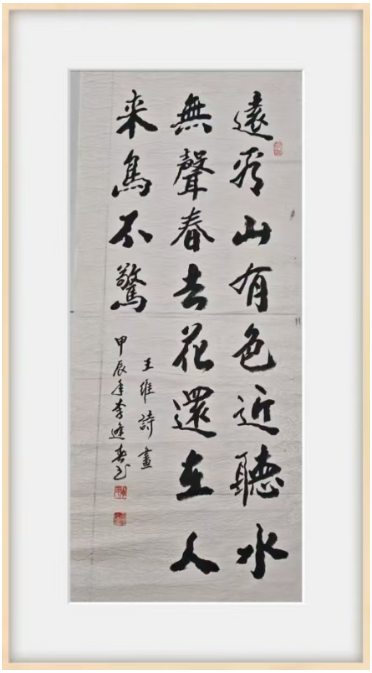 遠看山有色近聽水
無聲春去花還在人
来鳥不驚
王維詩畫
甲辰年李